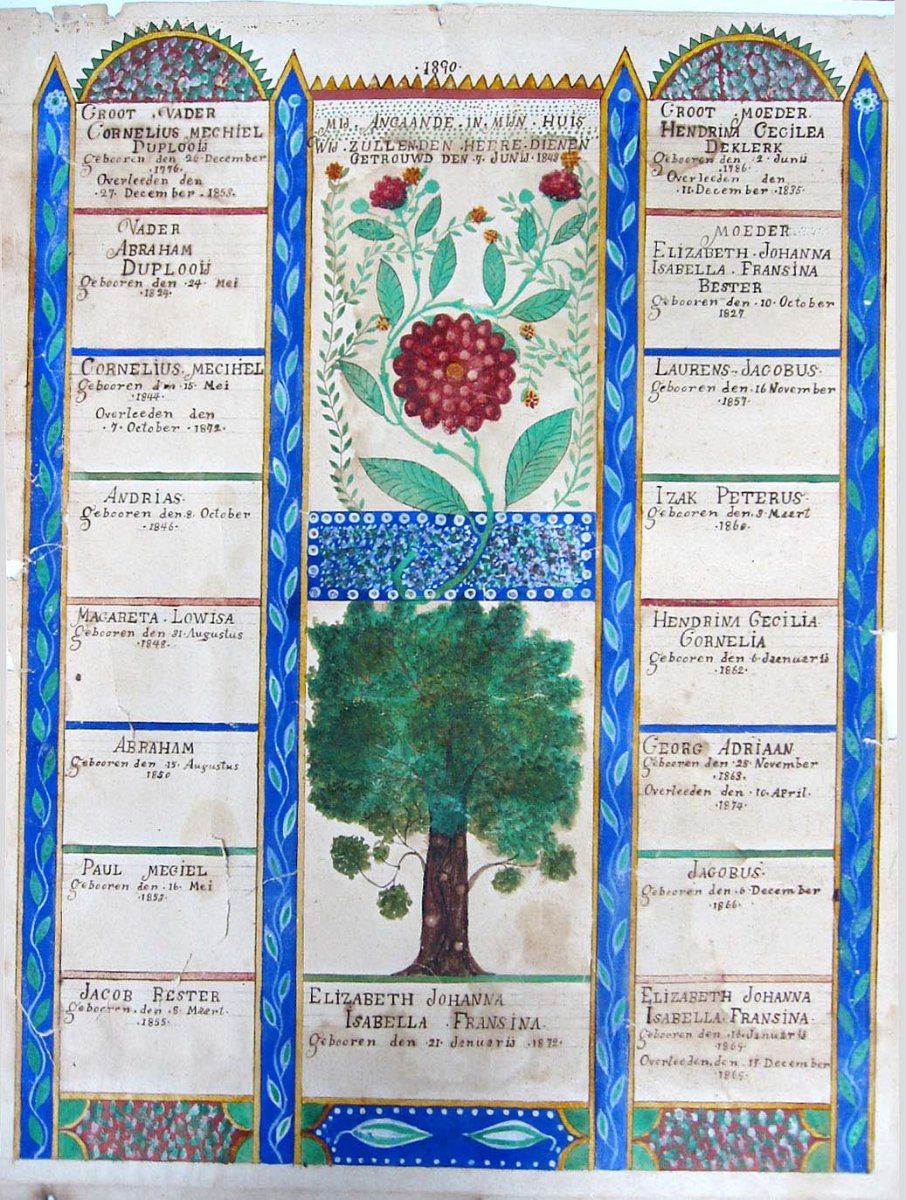 ·1890·
GROOT VADER
CORNELIUS MECHIEL
DUPLOOIJ
Gebooren den 26 December
·1776·
Overleeden den
27. December. 1853.
VADER
ABRAHAM
DUPLOOIJ
Gebooren den ·24· Mei
·1824·
CORNELIUS. MECIHEL
Gebooren den ·15· Mei
·1844·
Overleeden den
·7· October ·1872·
ANDRIAS·
Gebooren den ·8· October
·1846·
MAGARETA. LOWISA
Gebooren den 31· Augustus
·1848·
ABRAHAM
Gebooren den ·15· Augustus
1850
PAUL MEGIEL
Gebooren den ·16· Mei
·1853·
JACOB BESTER
Gebooren. den ·8· Maert.
·1855·
MIJ. ANGAANDE. IN. MIJN. HUIS
WIJ. ZULLEN. DEN. HEERE. DIENEN
GETROUWD DEN ·7· JUNIJ ·1843
ELIZABETH JOHANNA
ISABELLA . FRANSINA.
Gebooren den ·21· Januarij ·1872·
GROOT MOEDER.
HENDRINA CECILEA
DEKLERK
Gebooren den ·2· Junij
·1786·
Overleeden den
·11· December ·1835·
MOEDER
ELIZABETH · JOHANNA
ISABELLA · FRANSINA
BESTER
Gebooren den ·10· October
1827
LAURENS· JACOBUS·
Gebooren den ·16 November
·1857·
IZAK PETERUS·
Gebooren den ·3· Maert
·1860·
HENDRINA CECILIA·
CORNELIA
Gebooren den ·6· Jaenuarij
·1862·
GEORG ADRIAAN
Gebooren den ·25· November
·1863·
Overleeden den ·10· April·
·1874·
JACOBUS·
Gebooren den ·6· December
·1866·
ELIZABETH JOHANNA
ISABELLA. FRANSINA·
Gebooren den ·18· Januarij
Overleeden. den ·17· December